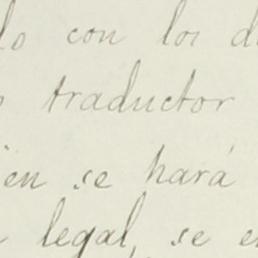 con los
traductor
se hará
legal, se